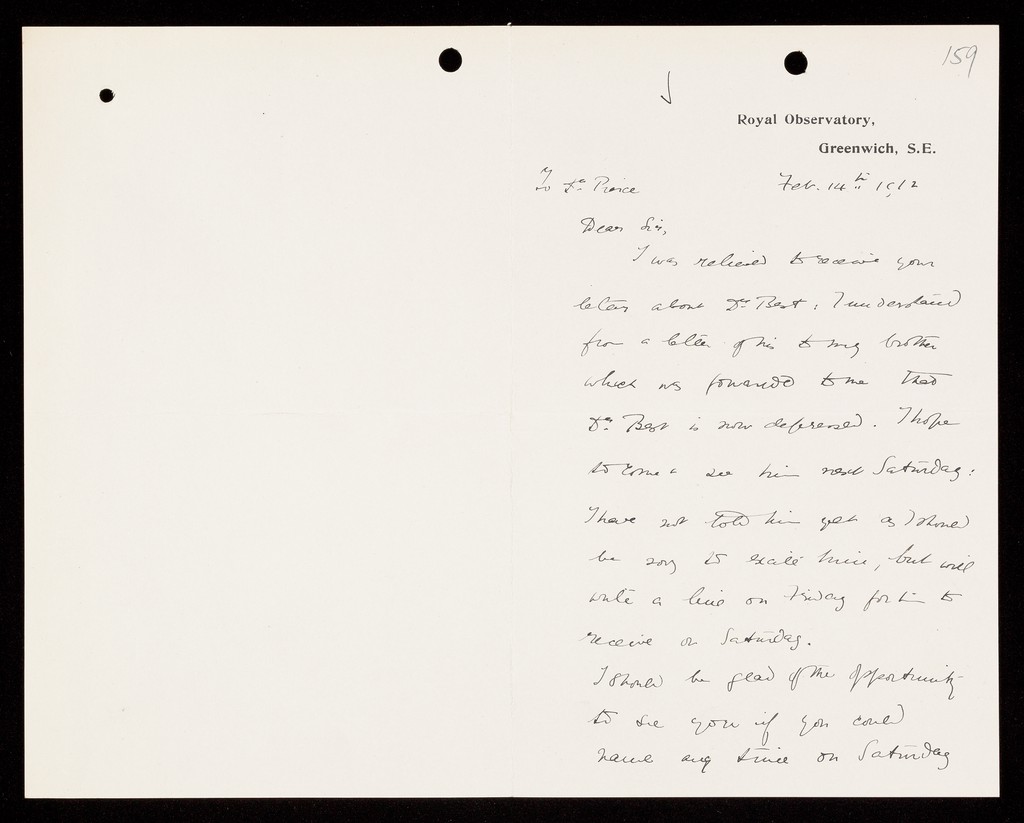 159
Royal Observatory,
Greenwich, S.E.
To Dr. Pierce
Feb. 14th 1912
Dear Sir,
I was relieved to receive your
letter about Dr. Best: I understand
from a letter of his to my brother
which was forwarded to me that
Dr. Best is now depressed. I hope
to come & see him next Saturday:
I have not told him yet as I should
be sorry to excite him, but will
write a line on Friday for him to
receive on Saturday.
I should be glad of the opportunity
to see you if you could
name any time on Saturday